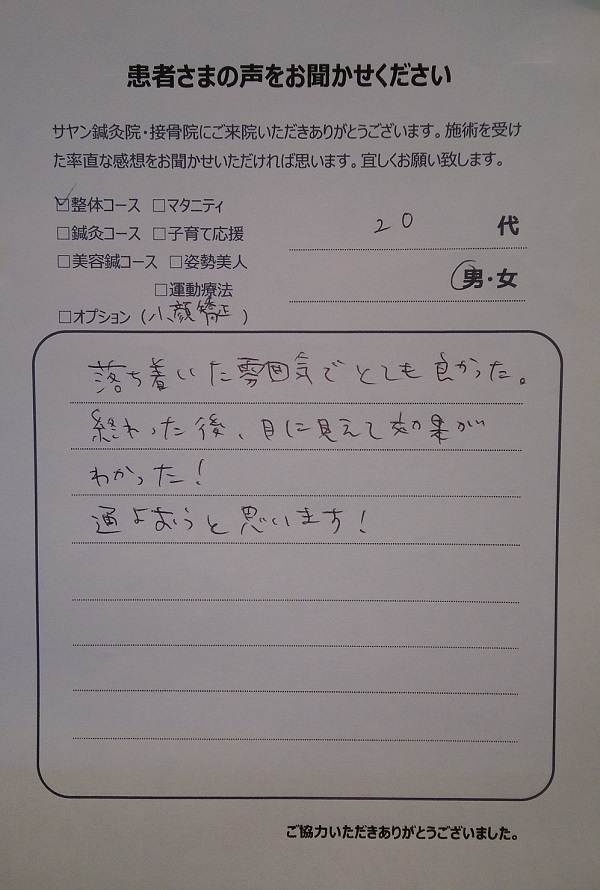 患者さまの声をお聞かせください
サヤン鍼灸院・接骨院にご来院いただきありがとうございます。施術を受け
た率直な感想をお聞かせいただければ思います。宜しくお願い致します。
☑整体コース □マタニティ
20 代
□鍼灸コース □子育て応援
□美容鍼コース □姿勢美人
男・女
□運動療法
□オプション (小顔矯正)
落ち着いた雰囲気でとても良かった。
終わった後、目に見えて効果が
わかった!
通よおうと思います!
ご協力いただきありがとうございました。